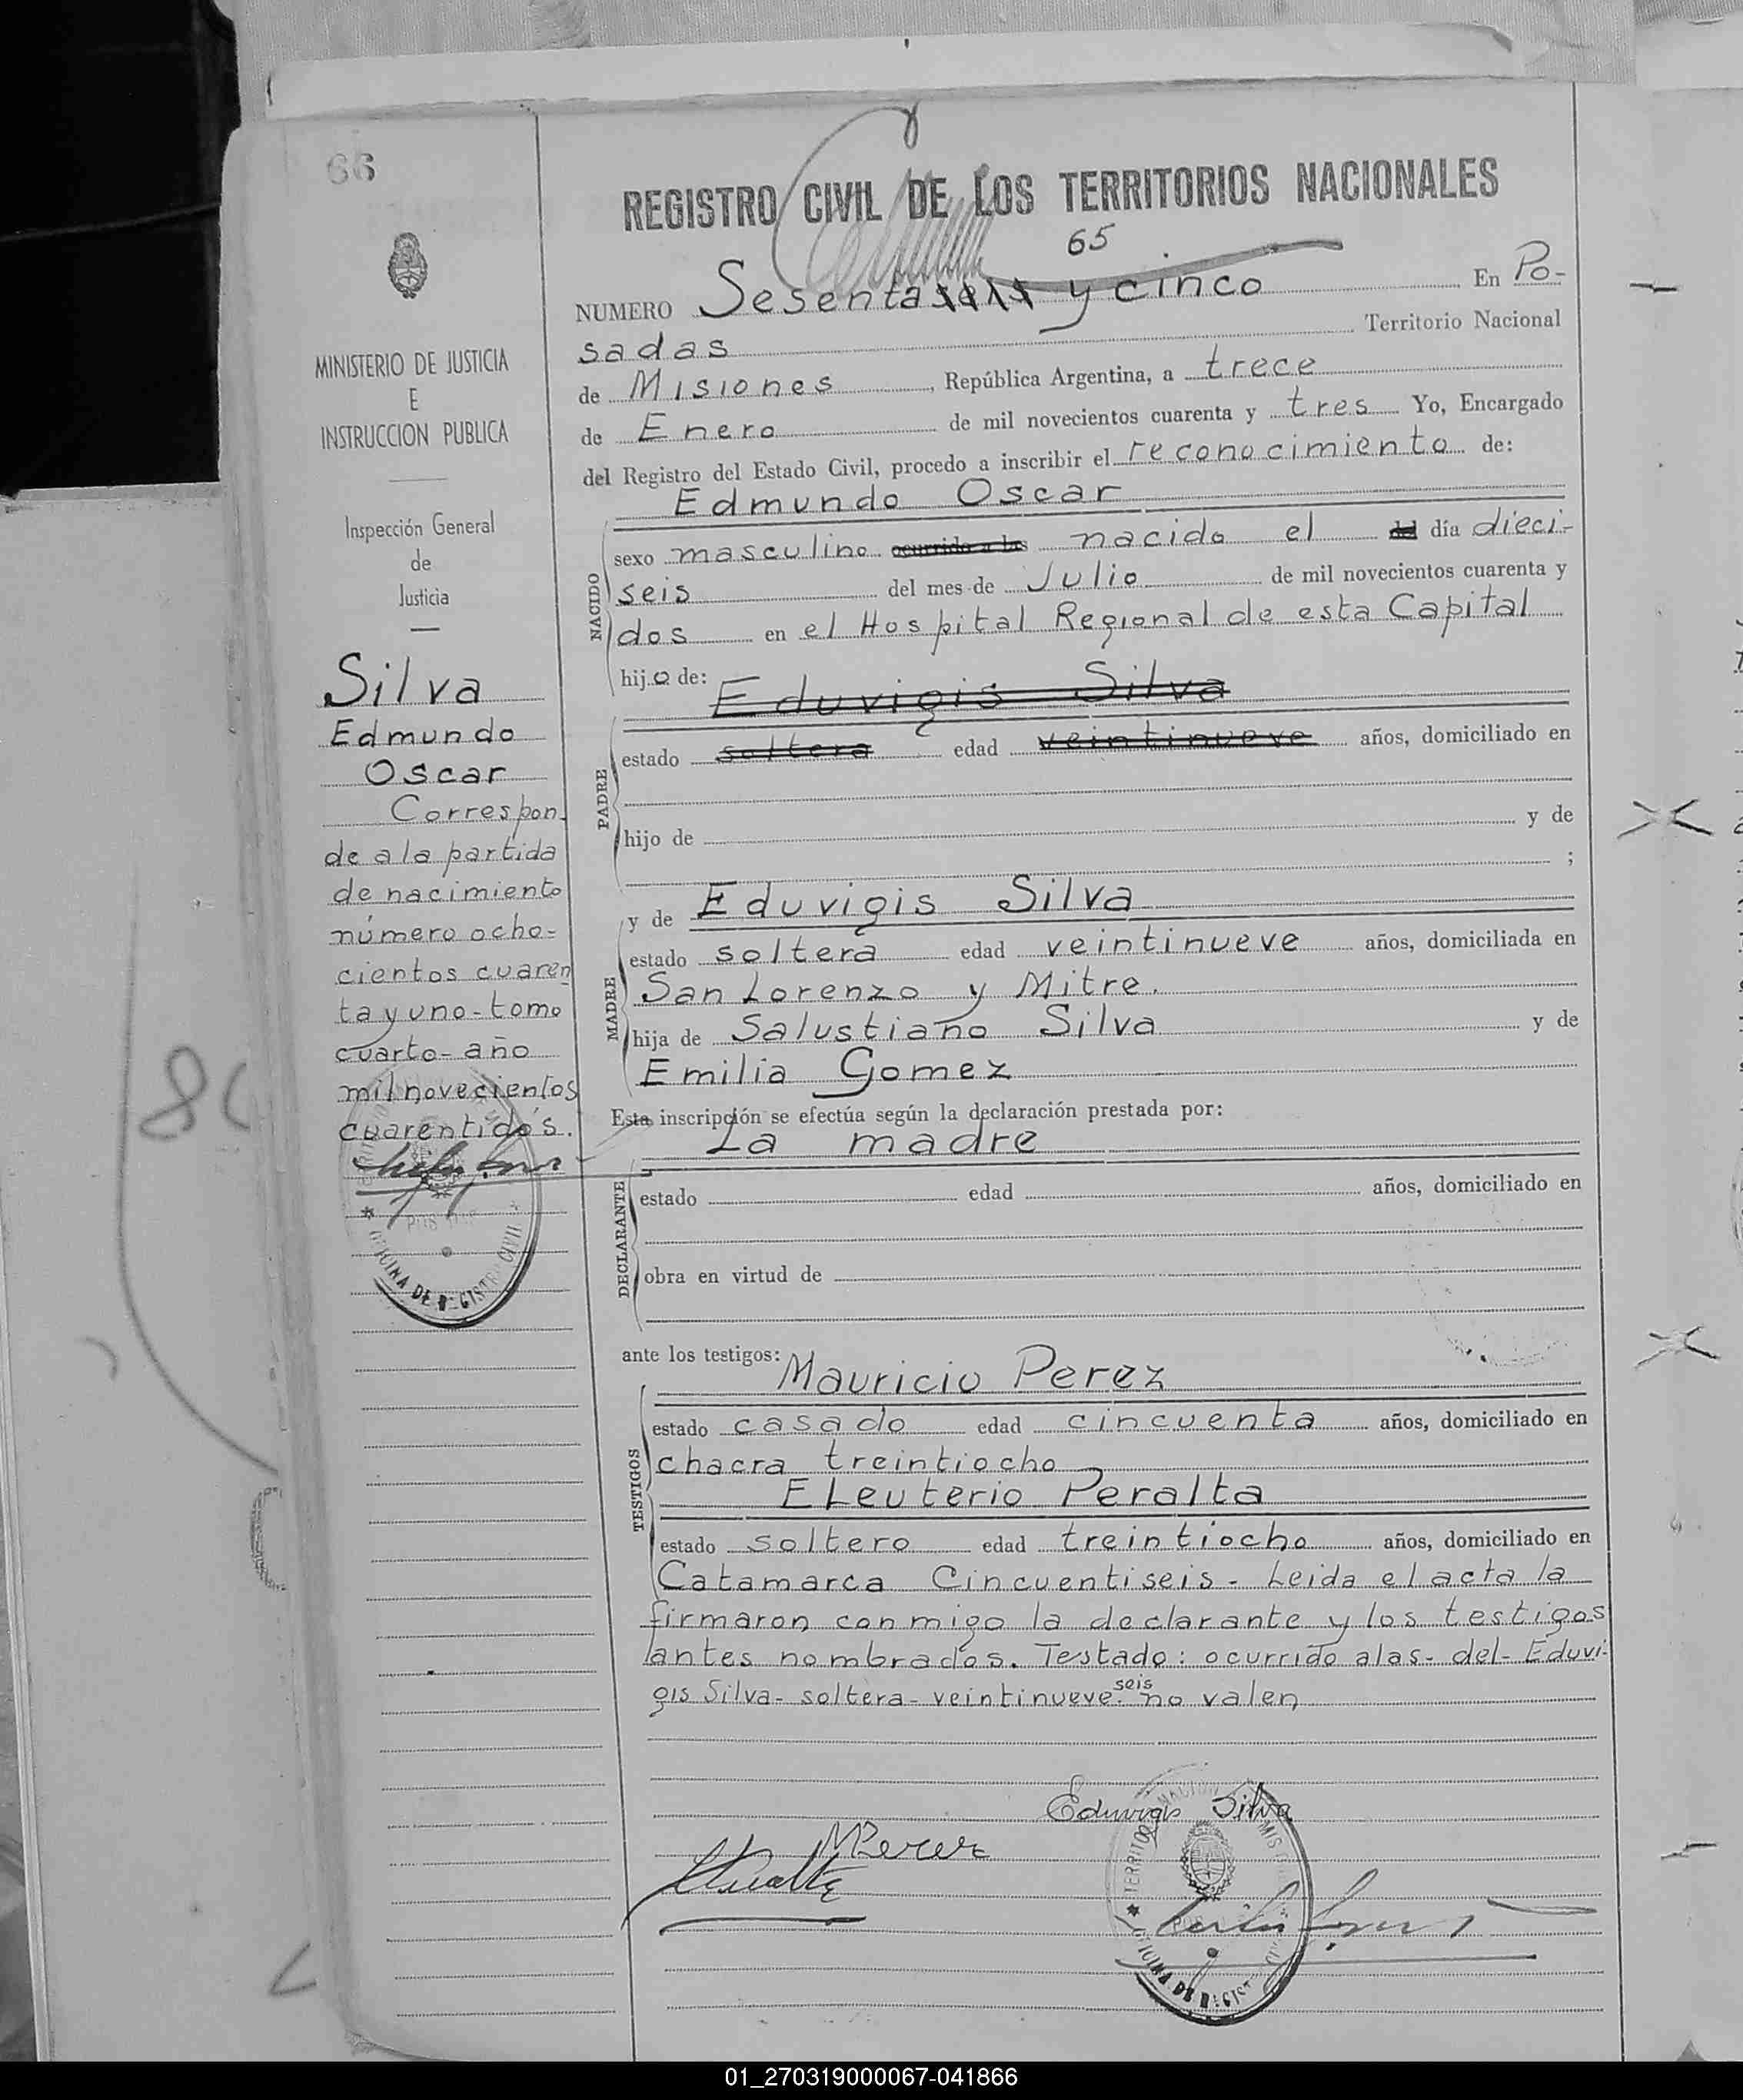 66
MINISTERIO DE JUSTICIA
E
INSTRUCCION PUBLICA
Inspección General
de
Justicia
Silva
Edmundo
Oscar
Correspon-
de a la partida
de nacimiento
número ocho-
cientos cuaren
ta y uno - tomo
cuarto - año
mil novecientos
cuarentidós.
OFICINA DE REGISTRO CIVIL
REGISTRO CIVIL DE LOS TERRITORIOS NACIONALES
65
NUMERO Sesenta seis y cinco En Po-
sadas Territorio Nacional
de Misiones, República Argentina, a trece
de Enero de mil novecientos cuarenta y tres Yo, Encargado
del Registro del Estado Civil, procedo a inscribir el reconocimiento de:
Edmundo Oscar
NACIDO
sexo masculino ocurrido a las nacido el del día dieci-
seis del mes de Julio de mil novecientos cuarenta y
dos en el Hospital Regional de esta Capital
hijo de:
Eduvigis Silva
PADRE
estado soltera edad veintinueve años, domiciliado en
hijo de y de
;
y de Eduvigis Silva
MADRE
estado soltera edad veintinueve años, domiciliada en
San Lorenzo y Mitre.
hija de Salustiano Silva y de
Emilia Gomez
Esta inscripción se efectúa según la declaración prestada por:
La madre
DECLARANTE
estado edad años, domiciliado en
obra en virtud de
ante los testigos:
Mauricio Perez
TESTIGOS
estado casado edad cincuenta años, domiciliado en
chacra treintiocho
Eleuterio Peralta
estado soltero edad treintiocho años, domiciliado en
Catamarca Cincuentiseis - Leida el acta la
firmaron conmigo la declarante y los testigos
antes nombrados. Testado: ocurrido a las - del - Eduvi-
gis Silva - soltera - veintinueve - seis no valen
Eduvigis Silva
MPerez
OFICINA DE REGIST
01_270319000067-041866